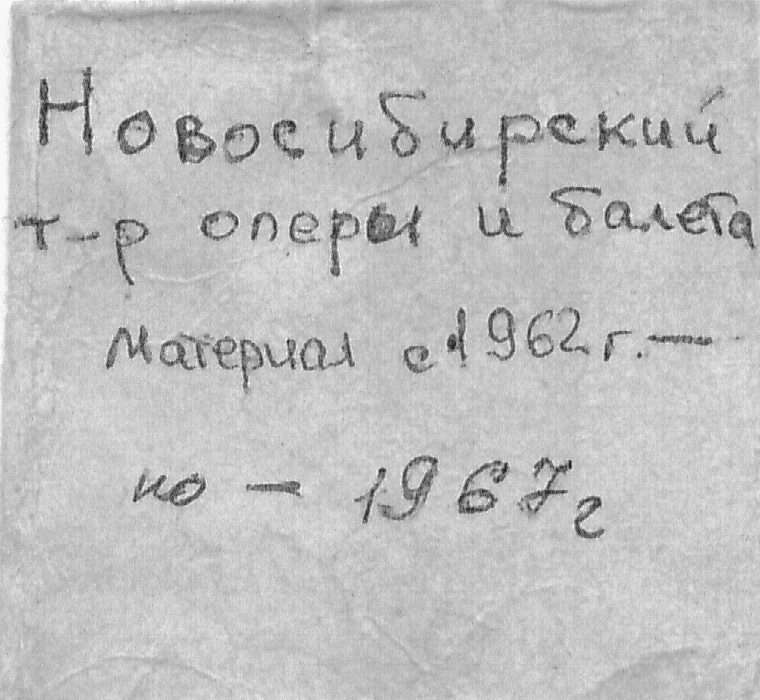 Новосибирский
т-р оперы и балета
Материал с 1962 г. —
по — 1967 г